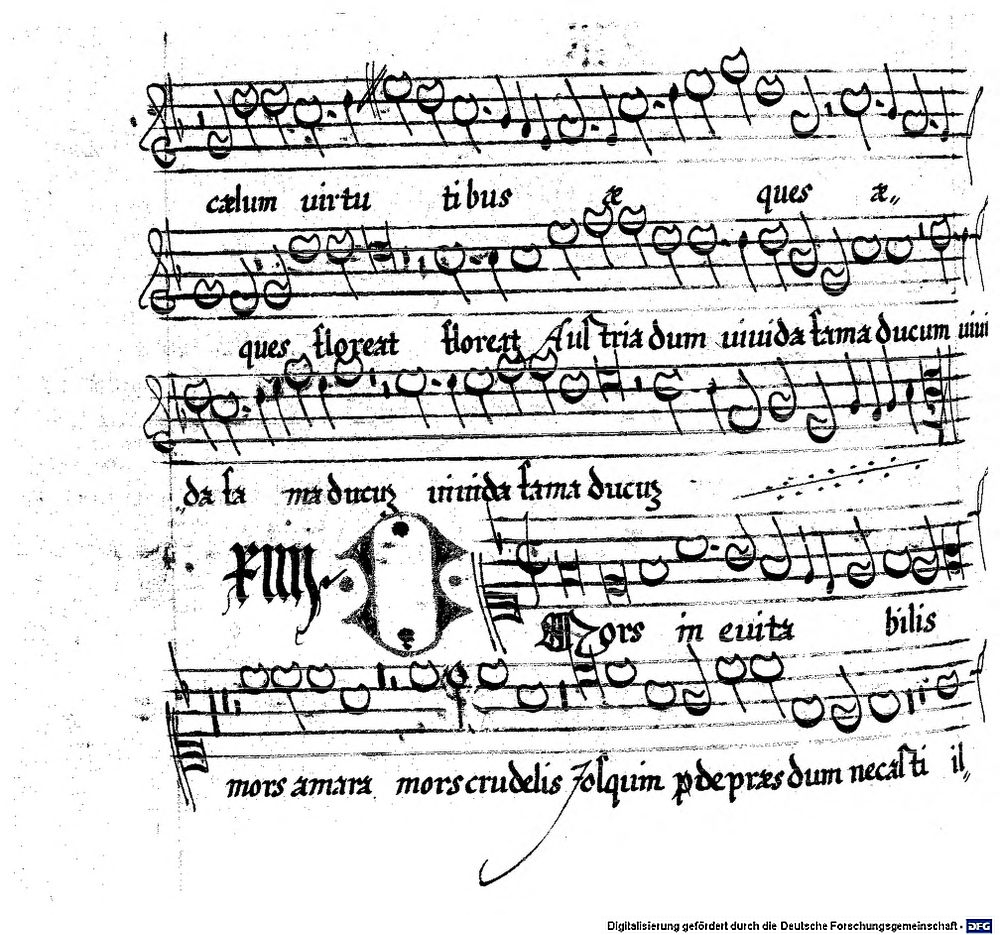 cælum uirtu tibus æ ques æ„
ques floreat floreat Austria dum uiuida fama ducum uiui
„da fa ma ducuʒ uiuida fama ducuʒ
xiiij
Mors in euita bilis
mors amara mors crudelis Josquim dum necasti il„
Digitalisierung gefördert durch die Deutsche Forschungsgemeinschaft - DFG